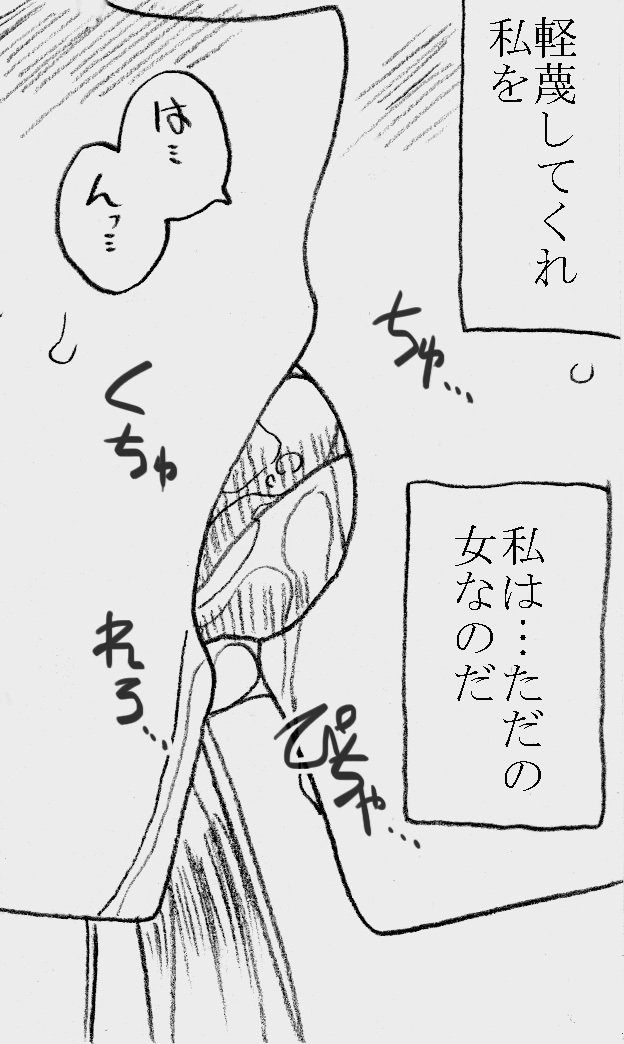 軽蔑してくれ
私を
は…
んッ…
ちゅ…
くちゅ
私は…ただの
女なのだ
れろ…
ぴちゃ…